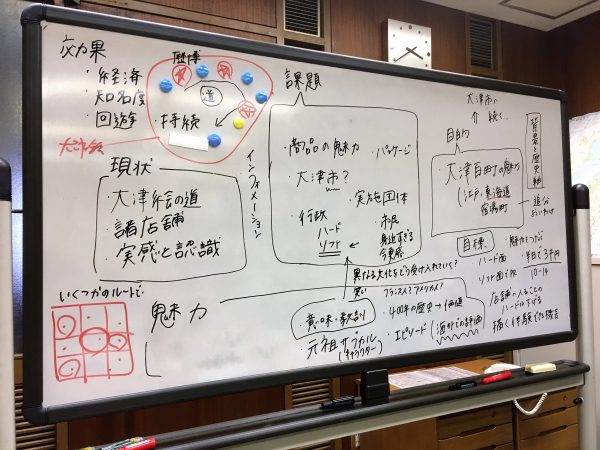 効果
・経済
・知名度
・回遊
・持続
歴博
道
現状
・大津絵の道
・諸店舗
・実感と認識
インフォメーション
いくつかのルートで
課題
・商品の魅力
・パッケージ
・大津市?
・実施団体
・行政
ハード
ソフト
・市民
身近すぎる
異なる文化をどう受け入れていく?
フランス人? アメリカ人?
笑い
魅力
・意味・教訓
・400年の歴史→価値
・元祖サブカル
(キャラクター)
・エピソード(海外での評価)
大津市へ
↑続く…
目的
背景と歴史軸
大津百町の魅力
(江戸、東海道
宿場町
追分
目標
ハード面
ソフト面
10-14
店舗へ入ることの
ハードル下げる
描く体験できる機会